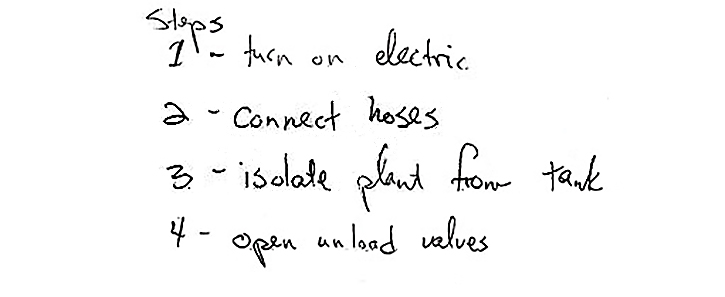 Steps
1 - turn on electric
2 - Connect hoses
3 - isolate plant from tank
4 - open unload valves